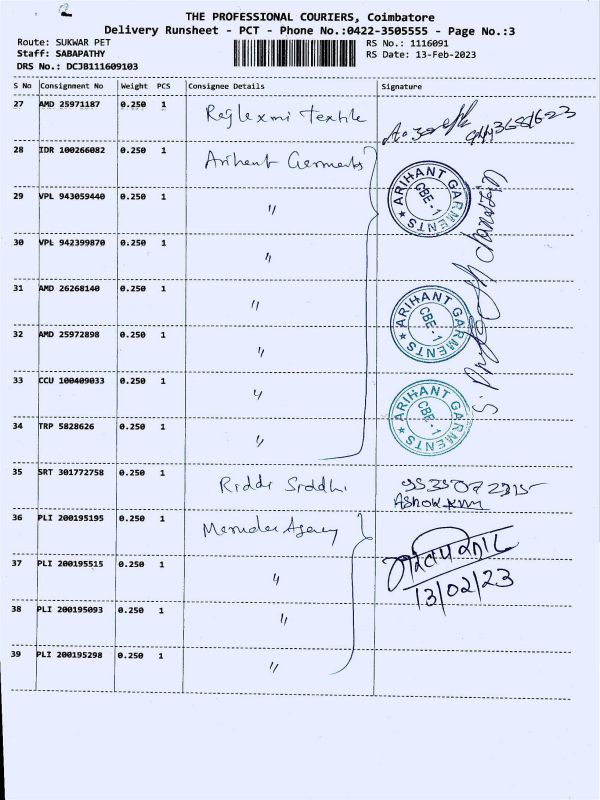 2
THE PROFESSIONAL COURIERS, Coimbatore
Delivery Runsheet - PCT - Phone No.:0422-3505555 - Page No.:3
Route: SUKWAR PET
Staff: SABAPATHY
DRS No.: DCJB111609103
RS No.: 1116091
RS Date: 13-Feb-2023
S No Consignment No Weight PCS Consignee Details Signature
27 AMD 25971187 0.250 1 Textile
28 IDR 100266082 0.250 1 Arihant Garments
29 VPL 943059440 0.250 1 〃
30 VPL 942399870 0.250 1 〃
31 AMD 26268140 0.250 1 〃
32 AMD 25972898 0.250 1 〃
33 CCU 100409033 0.250 1 〃
34 TRP 5828626 0.250 1 〃
ARIHANT GARMENTS
CBE-1
ARIHANT GARMENTS
CBE-1
ARIHANT GARMENTS
CBE-1
35 SRT 301772758 0.250 1 Riddi Siddhi
36 PLI 200195195 0.250 1 Agency
37 PLI 200195515 0.250 1 〃
13/02/23
38 PLI 200195093 0.250 1 〃
39 PLI 200195298 0.250 1 〃